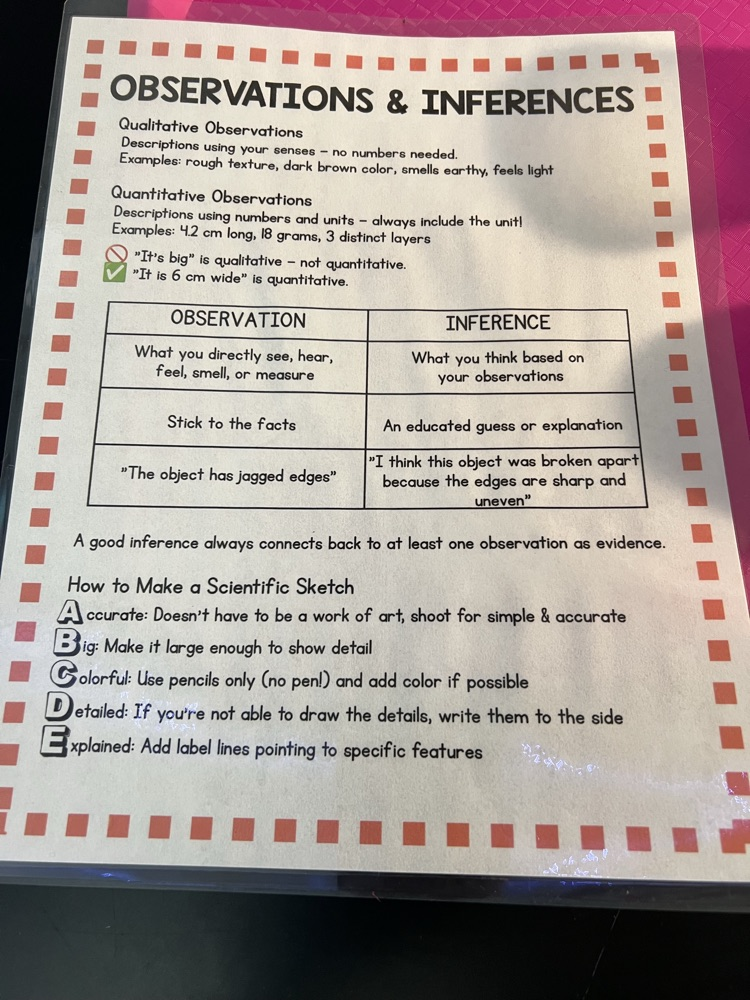 OBSERVATIONS & INFERENCES
Qualitative Observations
Descriptions using your senses – no numbers needed.
Examples: rough texture, dark brown color, smells earthy, feels light
Quantitative Observations
Descriptions using numbers and units – always include the unit!
Examples: 4.2 cm long, 18 grams, 3 distinct layers
"It's big" is qualitative – not quantitative.
"It is 6 cm wide" is quantitative.
OBSERVATION
INFERENCE
What you directly see, hear,
feel, smell, or measure
What you think based on
your observations
Stick to the facts
An educated guess or explanation
"The object has jagged edges"
"I think this object was broken apart
because the edges are sharp and
uneven"
A good inference always connects back to at least one observation as evidence.
How to Make a Scientific Sketch
Accurate: Doesn't have to be a work of art, shoot for simple & accurate
Big: Make it large enough to show detail
Colorful: Use pencils only (no pen!) and add color if possible
Detailed: If you're not able to draw the details, write them to the side
Explained: Add label lines pointing to specific features